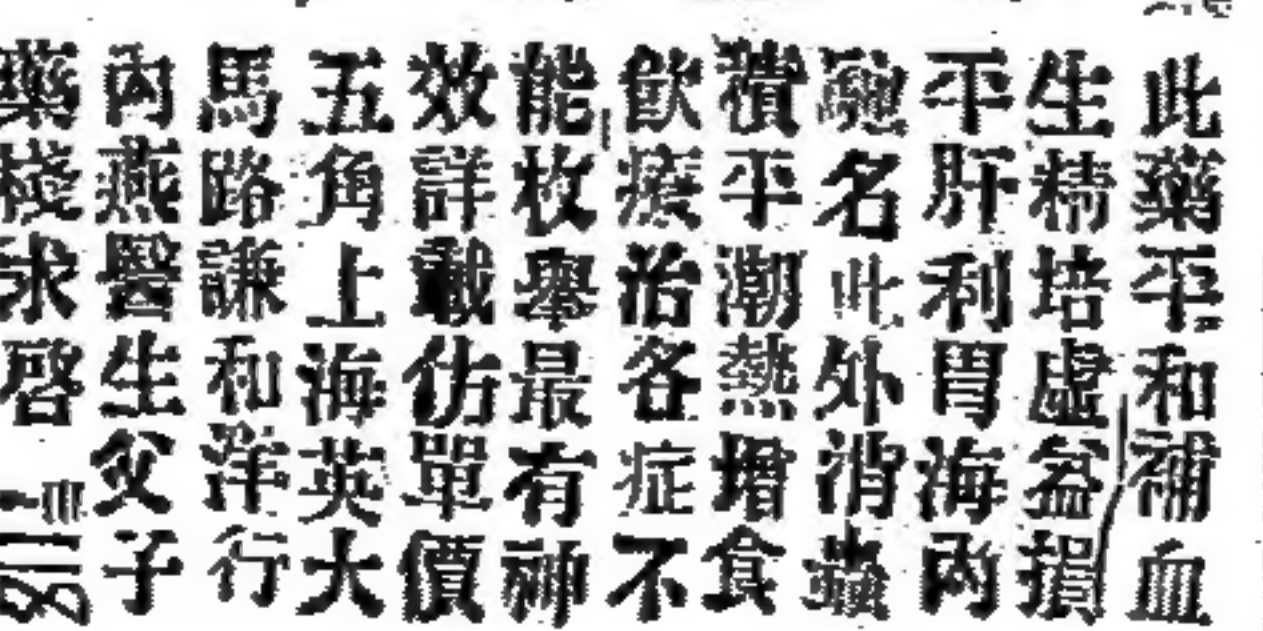 此藥平和補血
生精培虛益損
平肝利胃海內
馳名此外消蟲
積平潮熱增食
飲痰治各症不
能枚舉最有神
效詳載仿單價
五角上海英大
馬路謙和洋行
內燕醫生父子
藥棧求啓